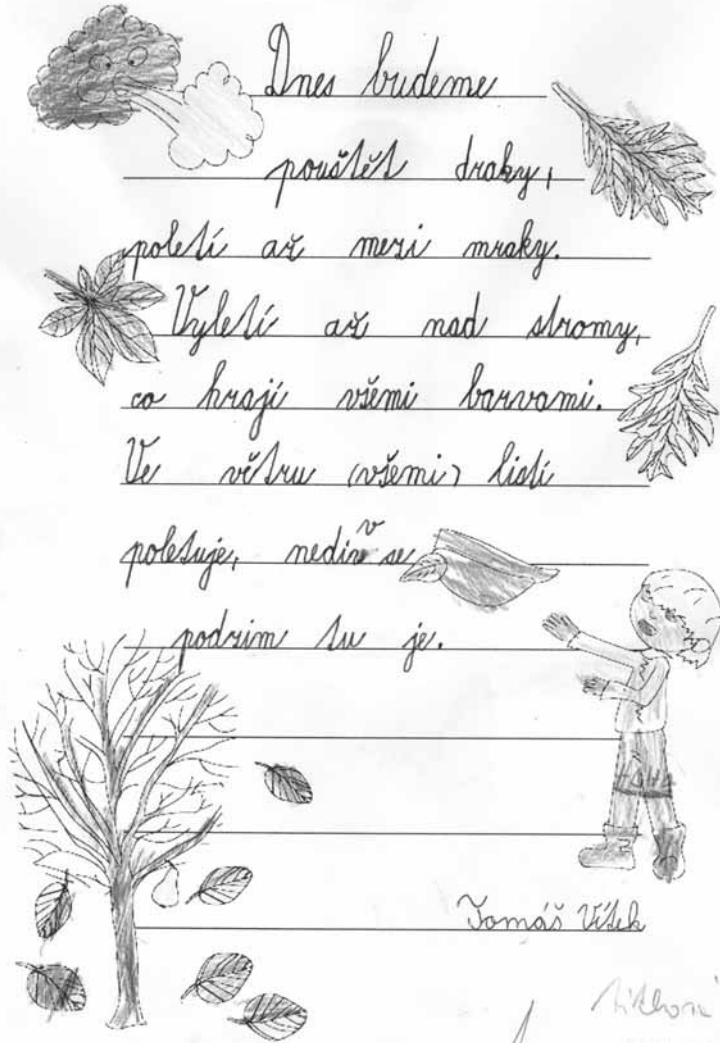 Dnes budeme
pouštět draky,
poletí až mezi mraky.
Vyletí až nad stromy,
co hrají všemi barvami.
Ve větru (všemi) listí
poletuje, nediv se
podzim tu je.
Tomáš Vítek